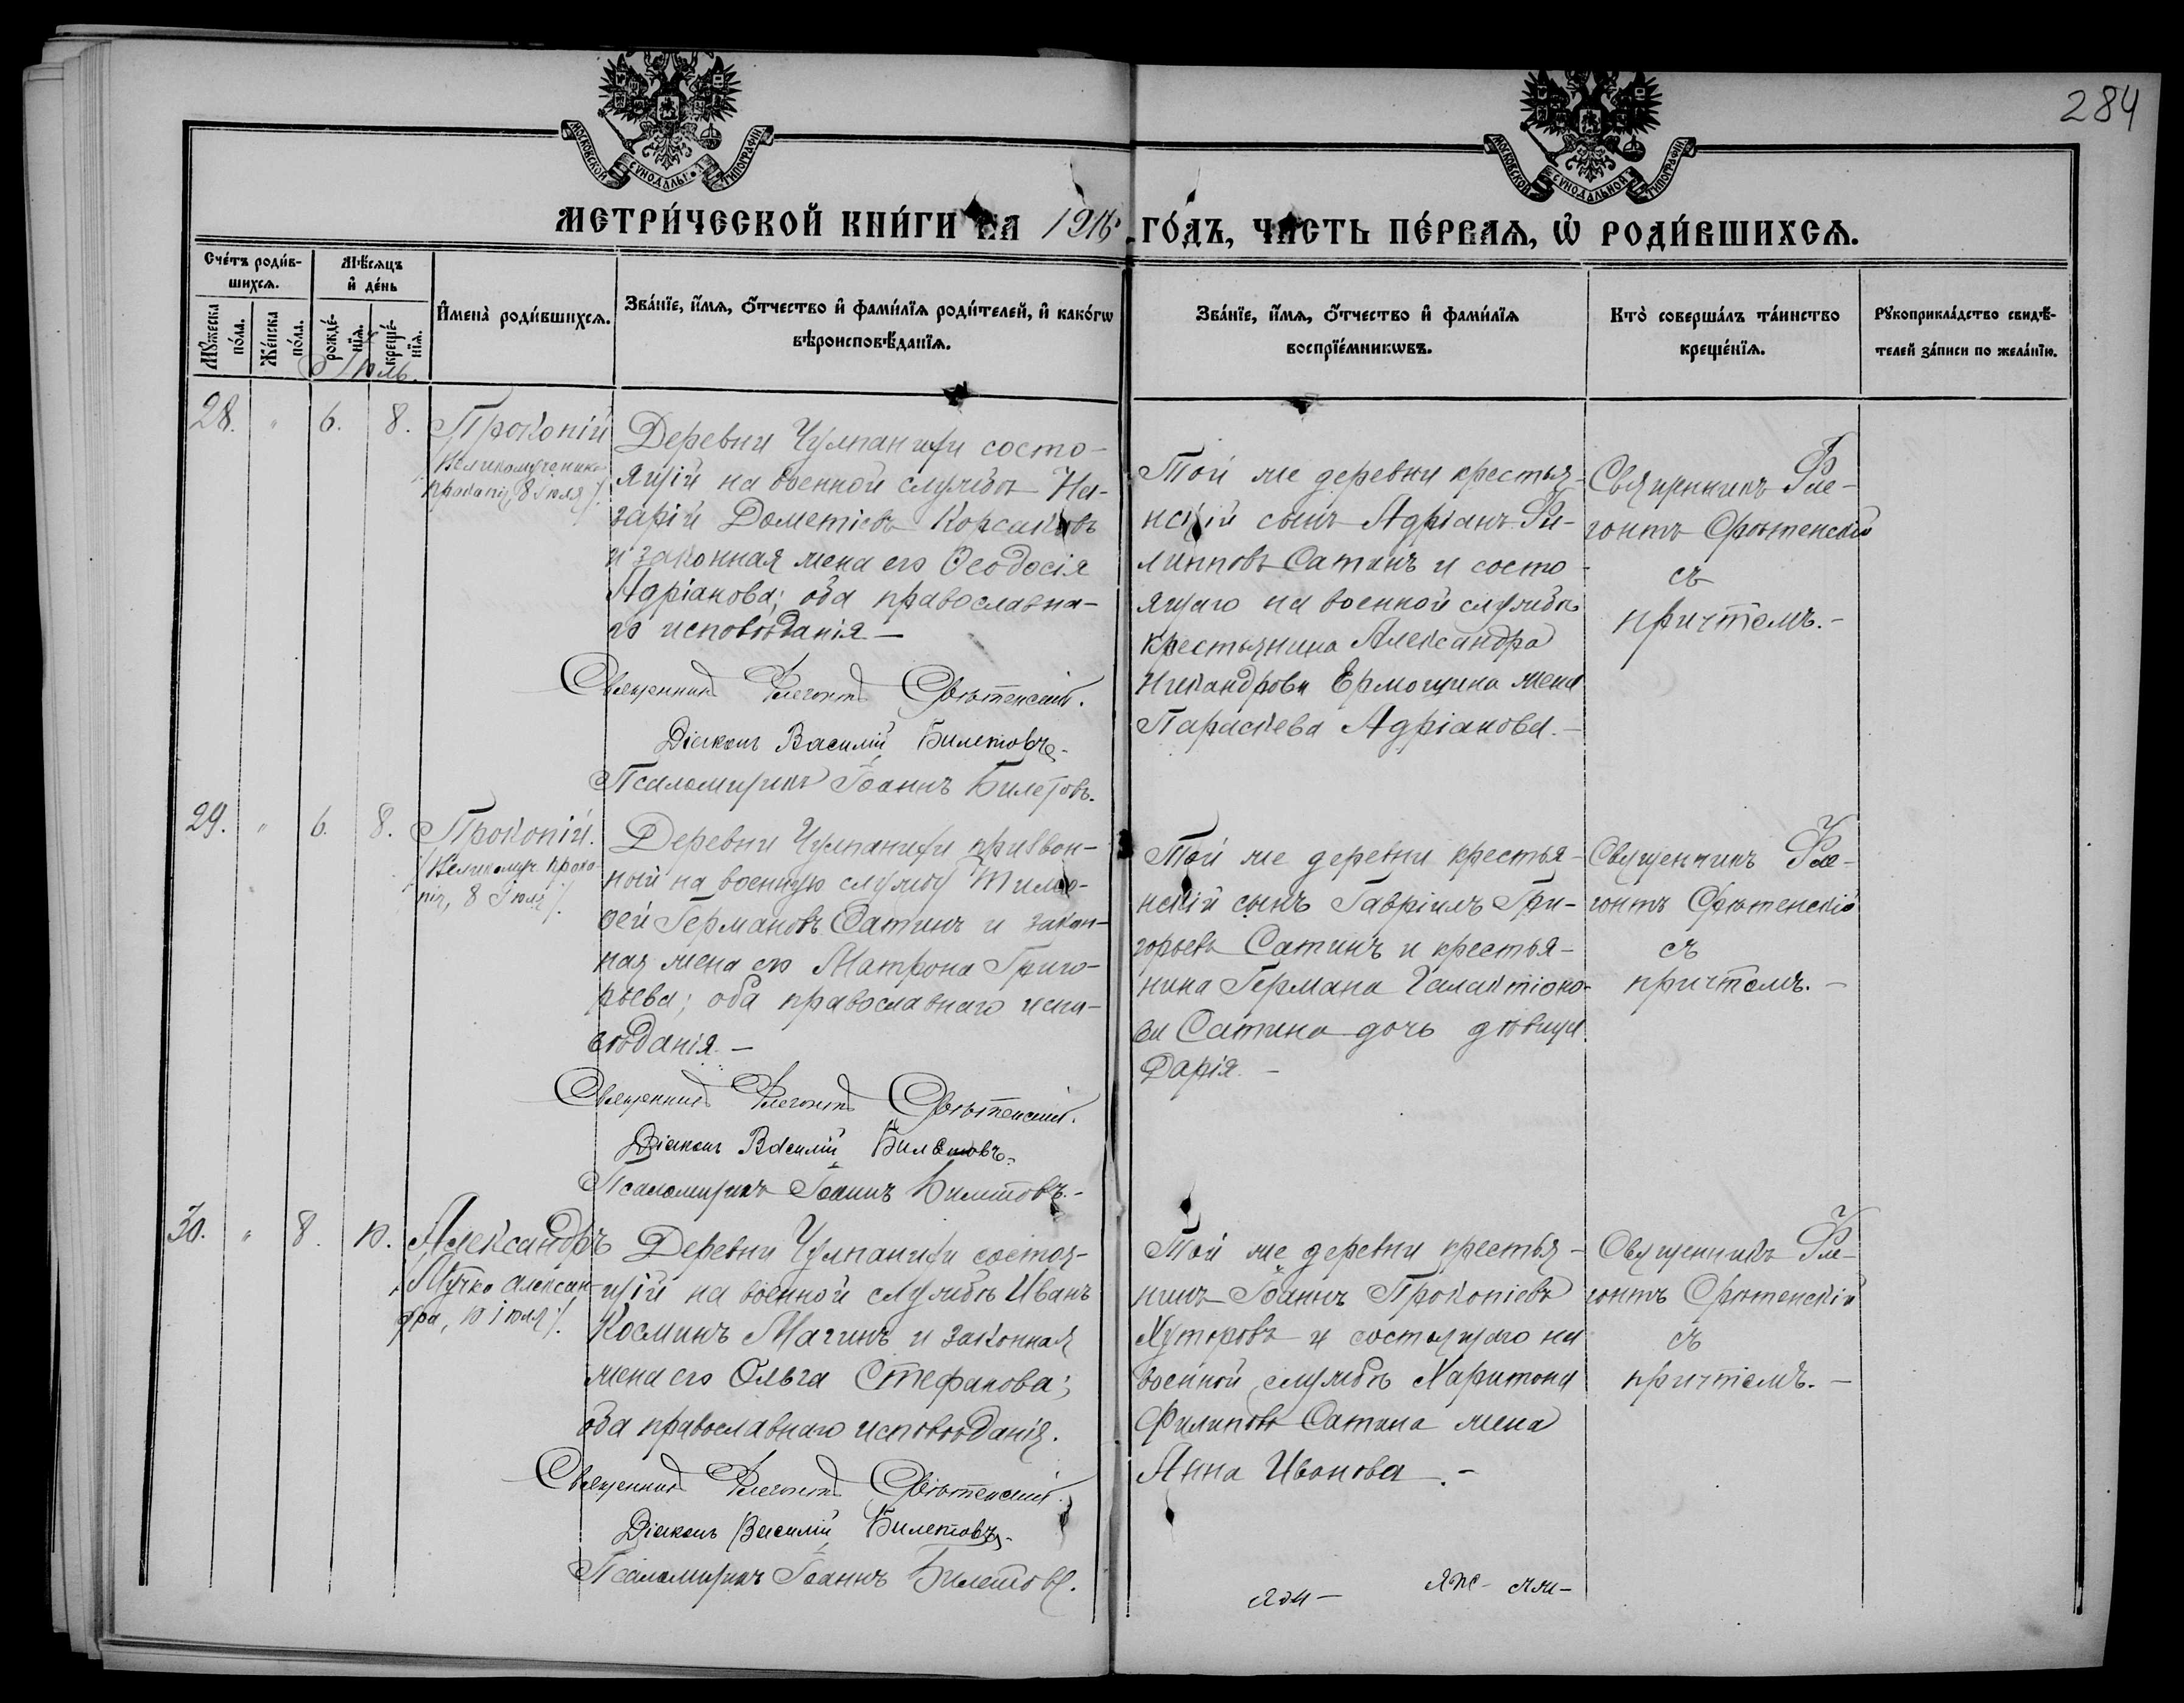 284
МОСКОВСКОЙ СѴНОДАЛЬНОЙ ТИПОГРАФІИ
МОСКОВСКОЙ СѴНОДАЛЬНОЙ ТИПОГРАФІИ
МЕТРИ́ЧЕСКОЙ КНИ́ГИ НА 1916 ГО́ДЪ, ЧАСТЬ ПЕ́РВАѦ, Ѡ҆ РОДИ́ВШИХСѦ.
Сче́тъ роди́в-
шихсѧ.
Мꙋжеска по́ла.
Же́нска по́ла.
Мѣ́сѧцъ
и҆ де́нь
рожде́-
нїѧ.
креще́-
нїѧ.
И҆мена̀ роди́вшихсѧ.
Зва́нїе, и҆́мѧ, ѻ҆́тчество и҆ фами́лїѧ роди́телей, и҆ како́гѡ
вѣроисповѣ́данїѧ.
Зва́нїе, и҆́мѧ, ѻ҆́тчество и҆ фами́лїѧ
воспрїе́мникѡвъ.
Кто̀ соверша́лъ та́инство
креще́нїѧ.
Рꙋкоприкла́дство свидѣ́-
телей за́писи по жела́нїю.
Іюль.
28. " 6. 8.
Прокопій
/Великомученика
Прокопія, 8 Іюля/.
Деревни Чулпанихи состо-
ящій на военной службѣ На-
зарій Дометіевъ Корсаковъ
и законная жена его Ѳеодосія
Адріанова; оба православна-
го исповѣданія. —
Священникъ Флегонтъ Срѣтенскій.
Діаконъ Василій Билетовъ.
Псаломщикъ Іоаннъ Билетовъ.
Той же деревни крестья-
нскій сынъ Адріанъ Фи-
липповъ Сатинъ и состо-
ящаго на военной службѣ
крестьянина Александра
Никандрова Ермошина жена
Параскева Адріанова. —
Священникъ Фле-
гонтъ Срѣтенскій
съ
причтомъ. —
29. " 6. 8.
Прокопій.
/Великомуч. Проко-
пія, 8 Іюля/.
Деревни Чулпанихи призван-
ный на военную службу Тимо-
ѳей Германовъ Сатинъ и закон-
ная жена его Матрона Григо-
рьева; оба православнаго испо-
вѣданія. —
Священникъ Флегонтъ Срѣтенскій.
Діаконъ Василій Билетовъ.
Псаломщикъ Іоаннъ Билетовъ. —
Той же деревни крестья-
нскій сынъ Гавріилъ Гри-
горьевъ Сатинъ и крестья-
нина Германа Галактіоно-
ва Сатина дочь дѣвица
Дарія. —
Священникъ Фле-
гонтъ Срѣтенскій
съ
причтомъ. —
30. " 8. 10.
Александръ
/Мучен. Алексан-
дра, 10 Іюля/.
Деревни Чулпанихи состоя-
щій на военной службѣ Иванъ
Косминъ Мачинъ и законная
жена его Ольга Стефанова;
оба православнаго исповѣданія.
Священникъ Флегонтъ Срѣтенскій.
Діаконъ Василій Билетовъ.
Псаломщикъ Іоаннъ Билетовъ.
Той же деревни крестья-
нинъ Іоаннъ Прокопіевъ
Хуторовъ и состоящаго на
военной службѣ Харитона
Филипова Сатина жена
Анна Иванова. —
Священникъ Фле-
гонтъ Срѣтенскій
съ
причтомъ. —